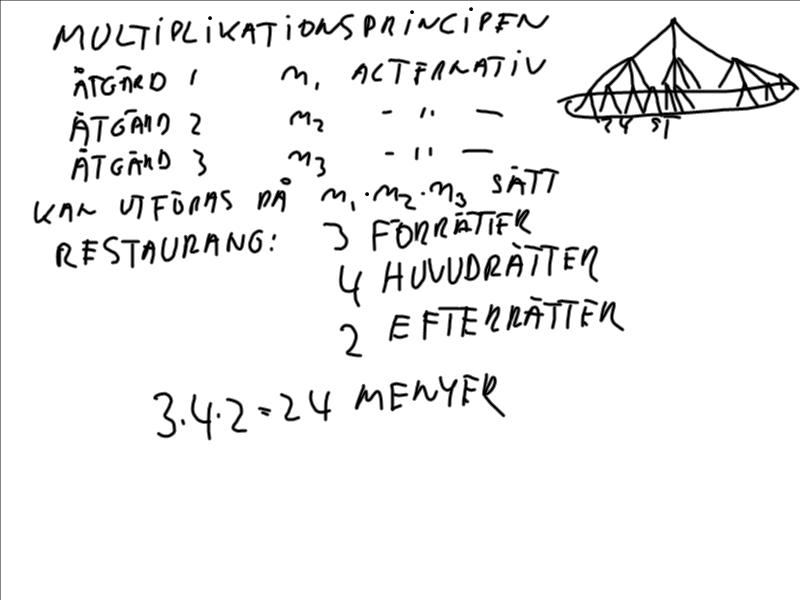 MULTIPLIKATIONSPRINCIPEN
ÅTGÄRD 1 m₁ ALTERNATIV
ÅTGÄRD 2 m₂ - " -
ÅTGÄRD 3 m₃ - " -
KAN UTFÖRAS PÅ m₁·m₂·m₃ SÄTT
RESTAURANG: 3 FÖRRÄTTER
4 HUVUDRÄTTER
2 EFTERRÄTTER
3·4·2=24 MENYER
24 ST